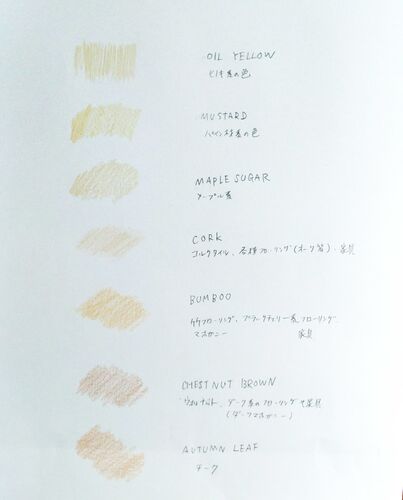 OIL YELLOW
ヒノキ系の色
MUSTARD
パイン材系の色
MAPLE SUGAR
メープル系
CORK
コルクタイル、各種フローリング(オーク等)・家具
BUMBOO
竹フローリング、ブラックチェリー系フローリング
マホガニー 家具
CHESTNUT BROWN
ウォルナット、ダーク系のフローリングや家具
(ダークマホガニー)
AUTUMN LEAF
チーク